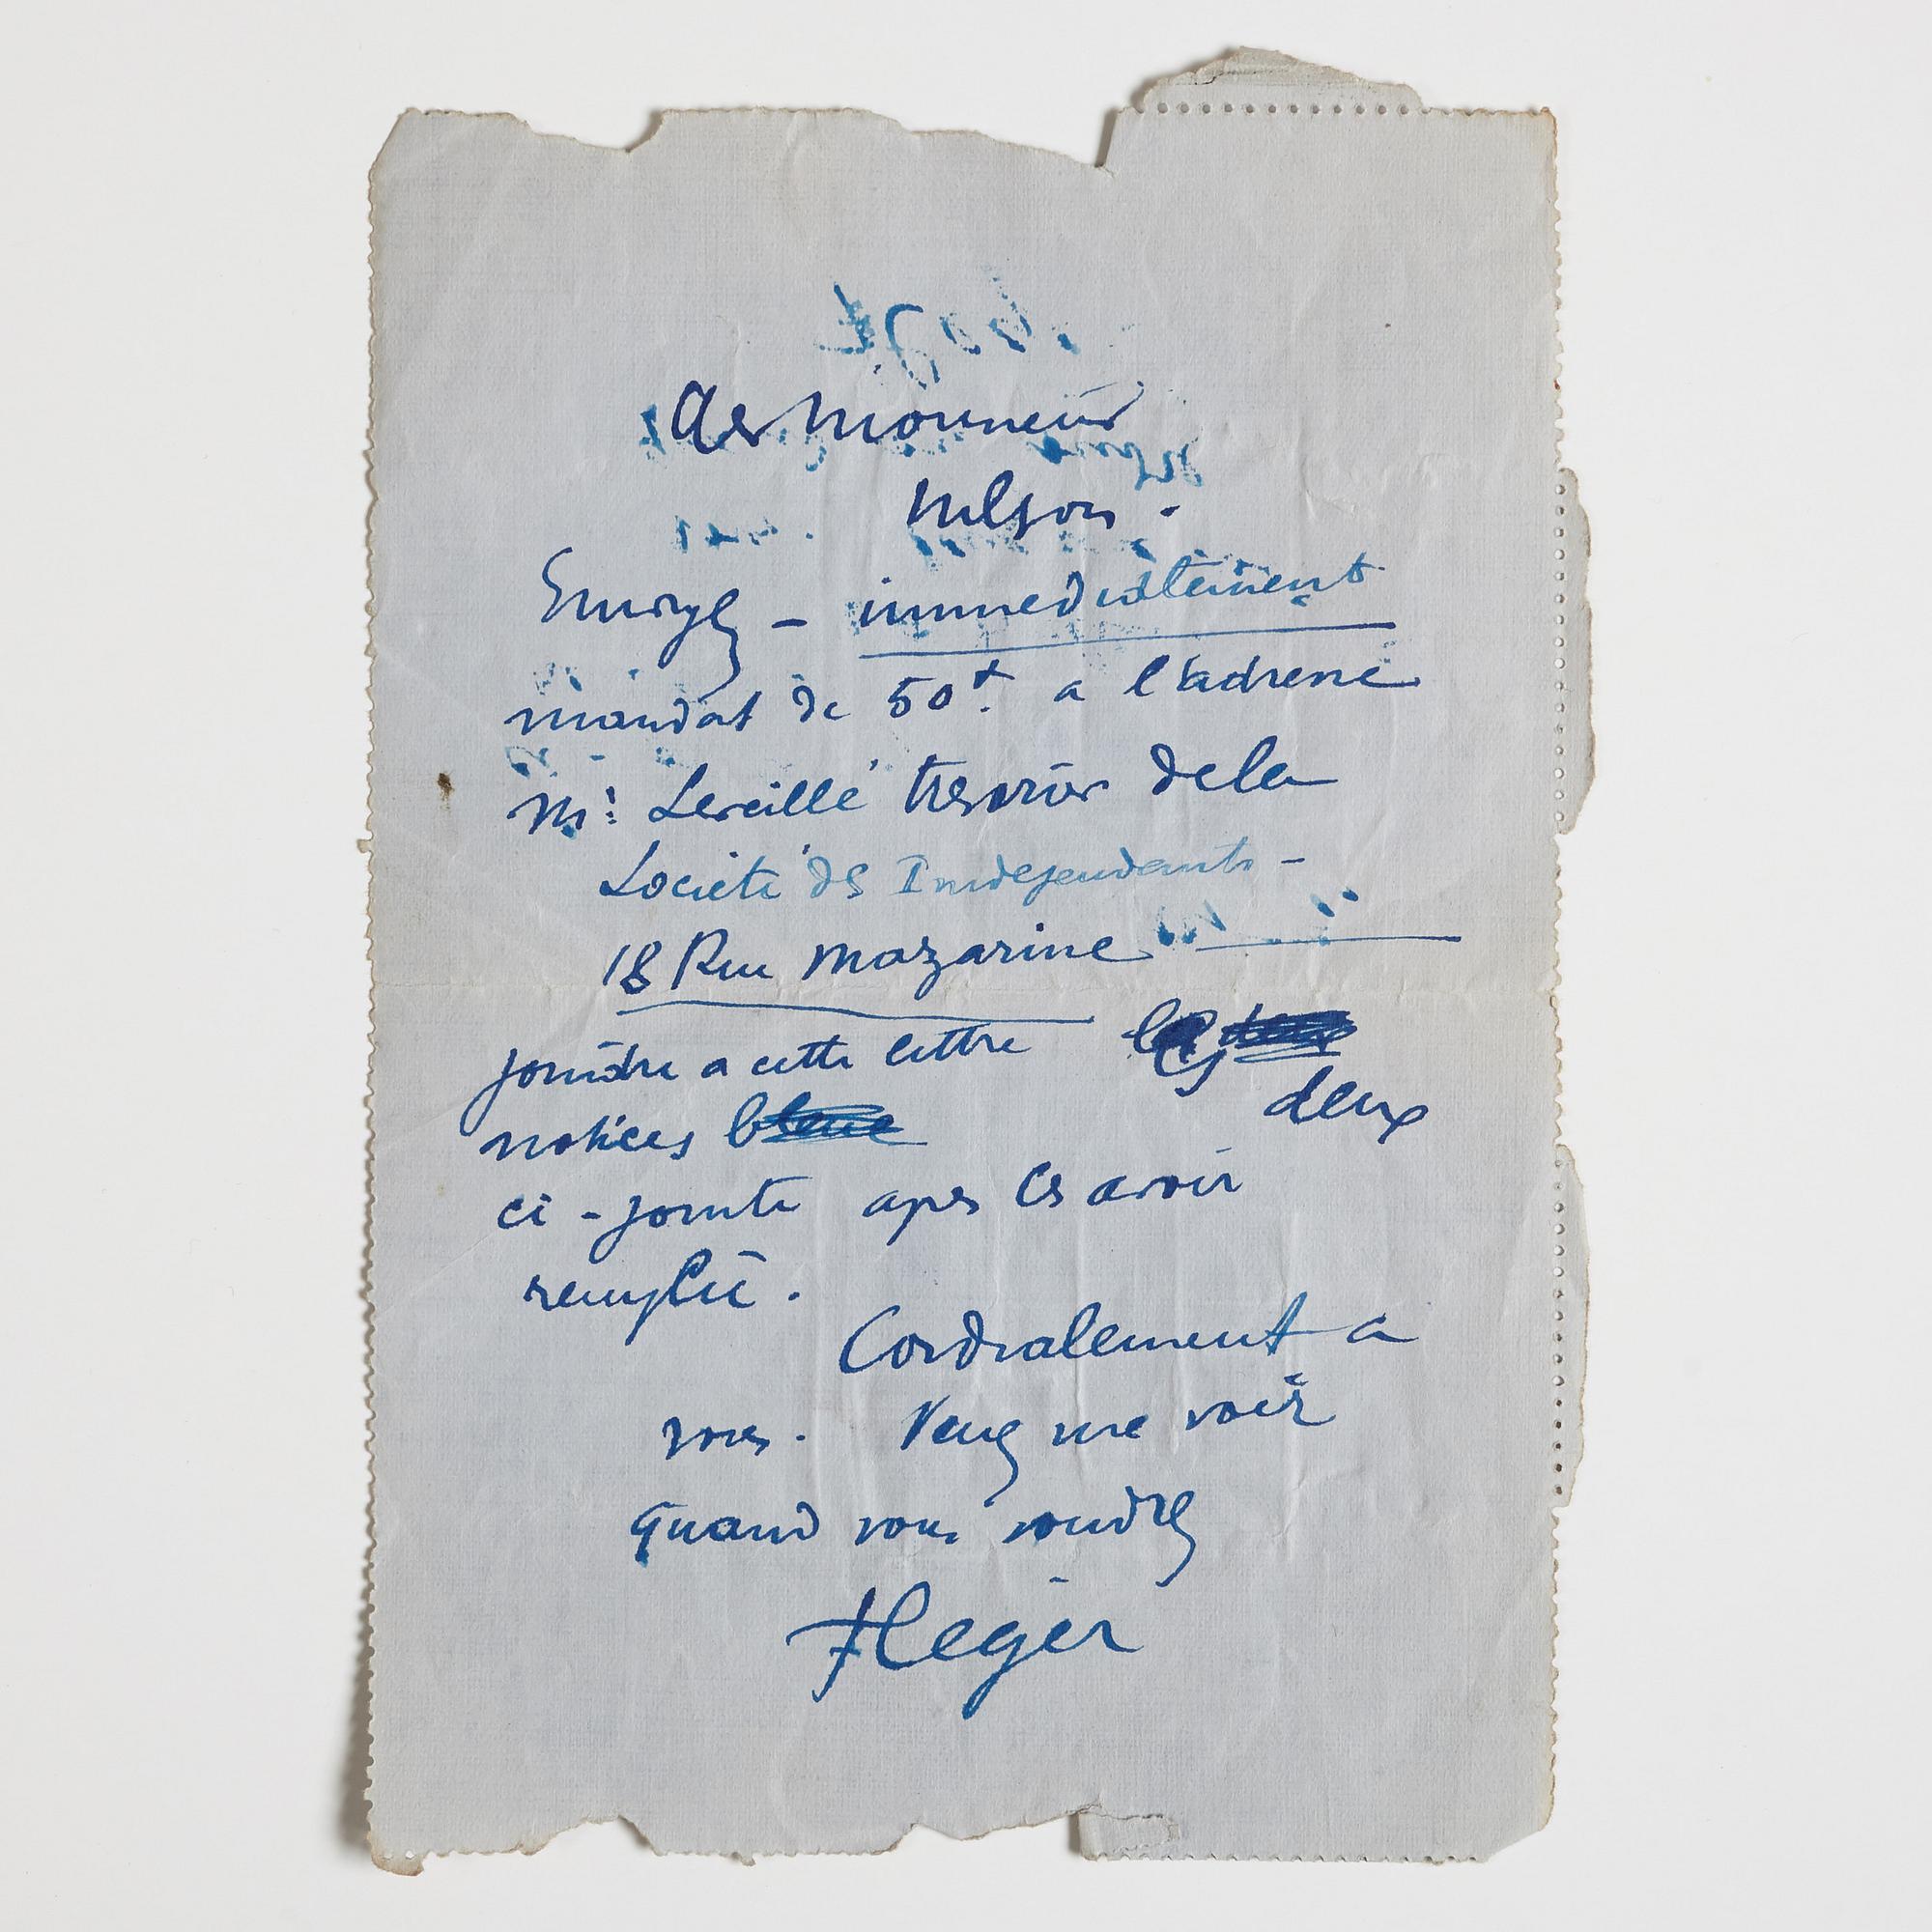 cher Monsieur
Nelson.
Envoyez - immediatement
mandat de 50f. a l'adresse
Mr: Leveillé tresorier de la
Société des Independants -
18 Rue Mazarine
joindre a cette lettre les
deux
notices
ci-jointe apres les avoir
remplie.
Cordialement a
vous. Venez me voir
quand vous voudrez
FLeger